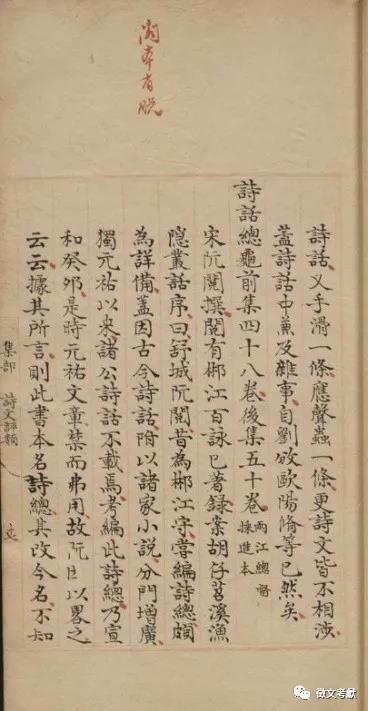 閣本有脫
詩話又手滑一條應聲蟲一條更詩文皆不相涉
蓋詩話中兼及雜事自劉攽歐陽脩等已然矣
詩話總龜前集四十八卷後集五十卷兩江總督採進本
宋阮閱撰閱有郴江百詠已著錄案胡仔苕溪漁
隱叢話序曰舒城阮閱昔為郴江守嘗編詩總頗
為詳備蓋因古今詩話附以諸家小說分門增廣
獨元祐以來諸公詩話不載焉考編此詩總乃宣
和癸卯是時元祐文章禁而弗用故阮因以畧之
云云據其所言則此書本名詩總其改今名不知
集部 詩文評類
徵文考獻